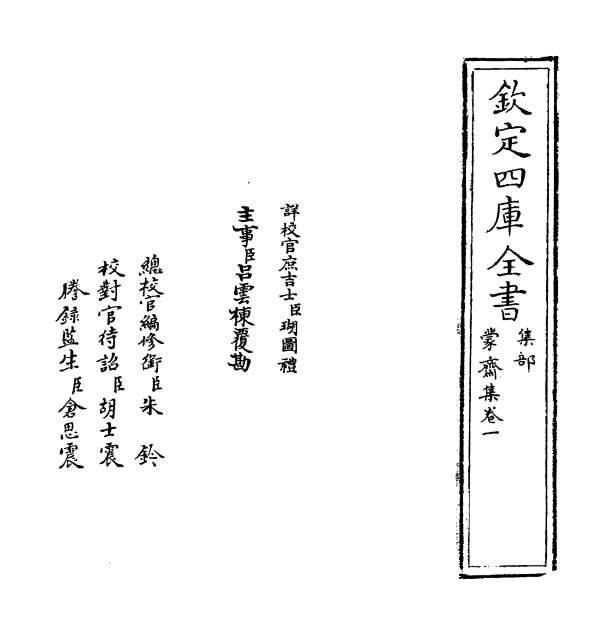 欽定四庫全書
集部
蒙齋集卷一
詳校官庶吉士臣瑚圖禮
主事臣呂雲棟覆勘
總校官編修銜臣朱鈐
校對官待詔臣胡士震
謄錄監生臣倉思震